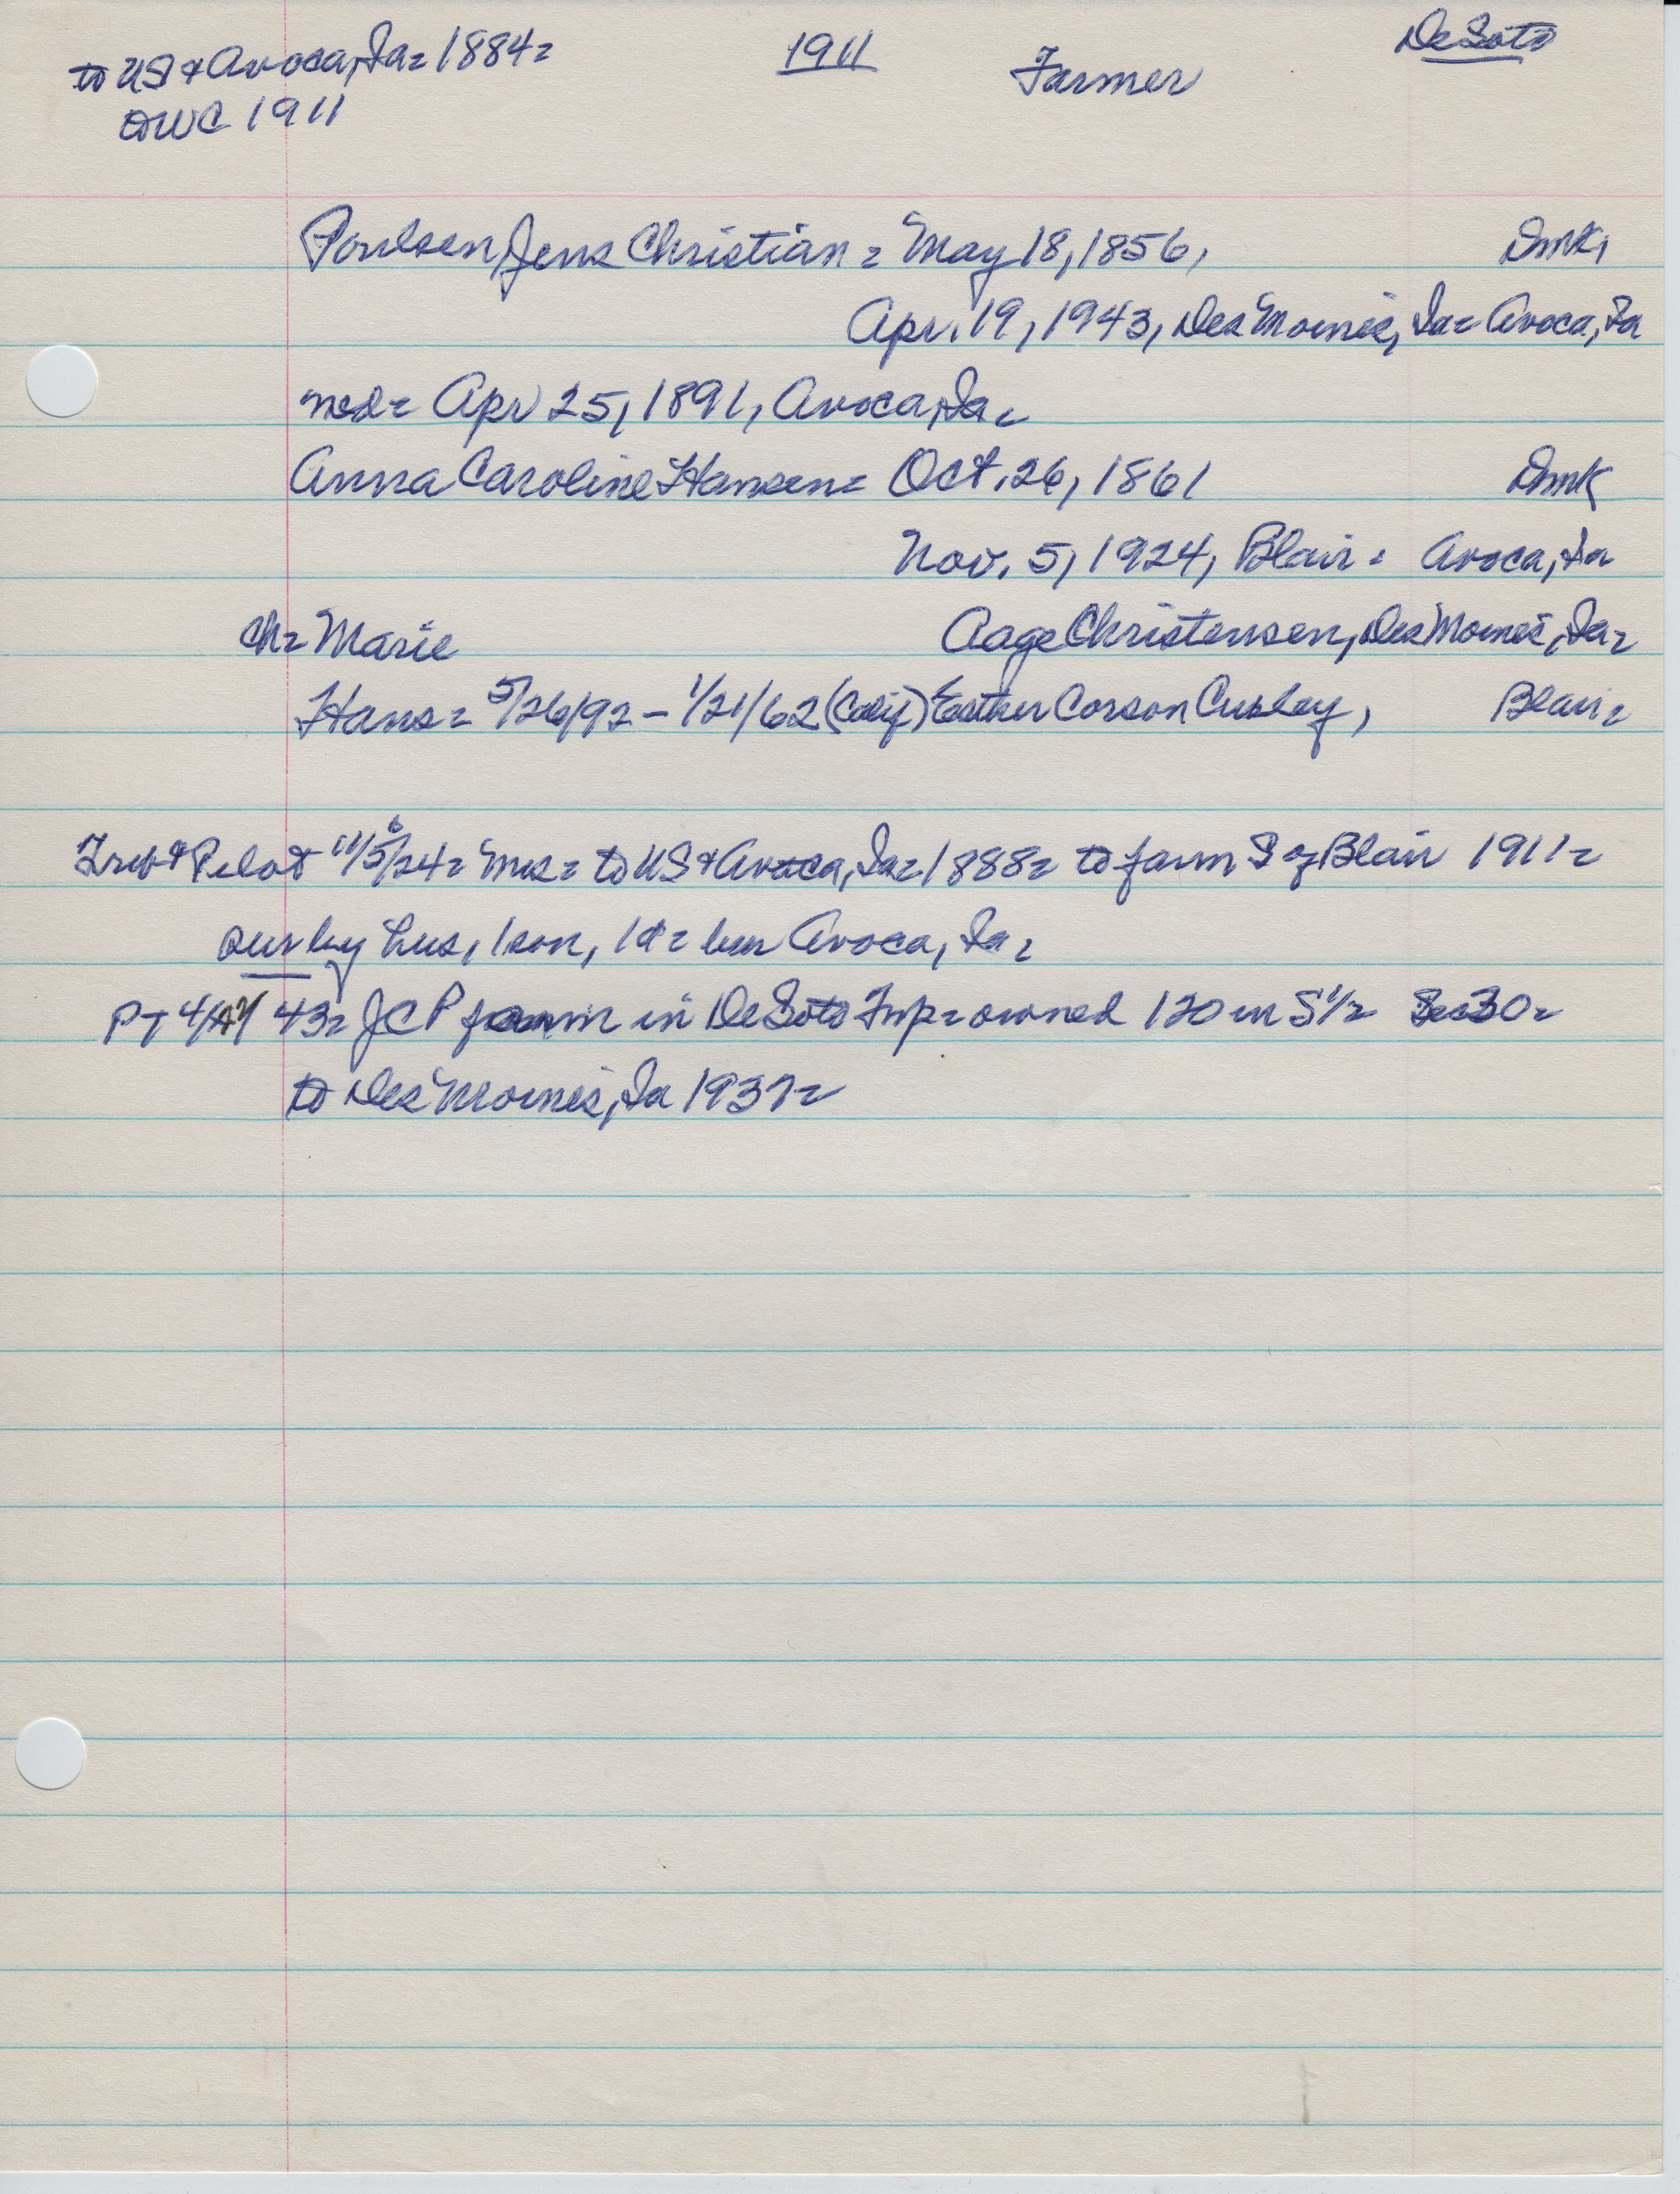 to US & Avoca, Ia = 1884 =
1911
Farmer
DeSoto
to WC 1911
Poulsen, Jens Christian = May 18, 1856, Dmk,
Apr. 19, 1943, Des Moines, Ia = Avoca, Ia
md = Apr 25, 1891, Avoca, Ia =
Anna Caroline Hansen = Oct. 26, 1861 Dmk
Nov. 5, 1924, Blair = Avoca, Ia
Ch = Marie Aage Christensen, Des Moines, Ia =
Hans = 5/26/92 - 1/21/62 (Calif) Esther Corson Curley, Blair =
Trib & Pilot 11/5/24 = Mrs = to US & Avoca, Ia = 1888 = to farm S of Blair 1911 =
surv by hus, 1 son, 1 d = bur Avoca, Ia =
PT 4/ 43 = JCP farm in DeSoto Twp = owned 120 in S 1/2 Sec 30 =
to Des Moines, Ia 1937 =